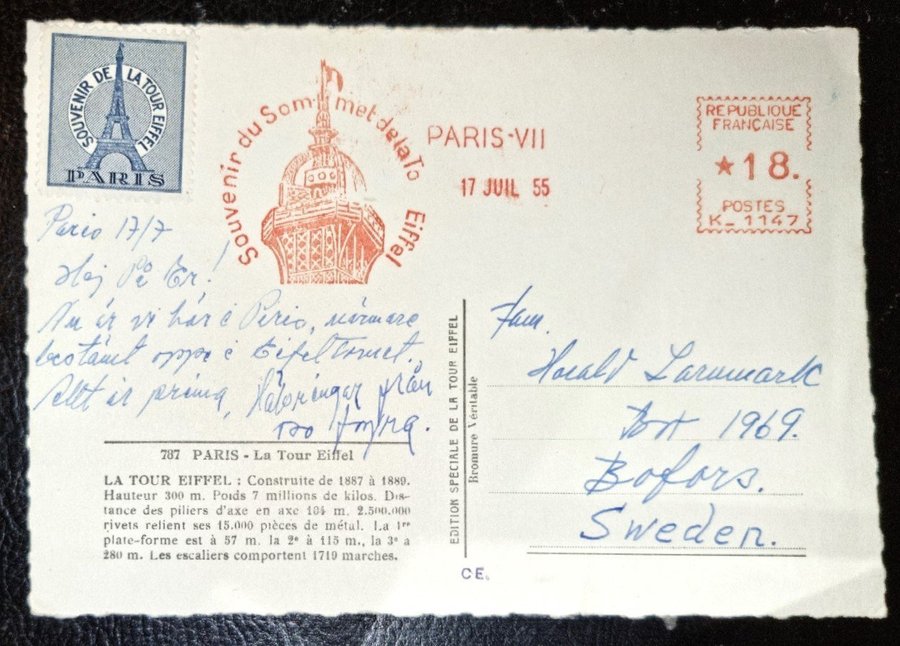 SOUVENIR DE LA TOUR EIFFEL
PARIS
Souvenir du Sommet de la To Eiffel
PARIS-VII
17 JUIL 55
REPUBLIQUE
FRANÇAISE
★18.
POSTES
K_1147
Paris 17/7
Hej Er!
Nu är vi här i Paris, närmare
bestämt oppe i Eifeltornet.
Allt är prima, Hälsningar från
787 PARIS - La Tour Eiffel
LA TOUR EIFFEL : Construite de 1887 à 1889.
Hauteur 300 m. Poids 7 millions de kilos. Dis-
tance des piliers d'axe en axe 104 m. 2.500.000
rivets relient ses 15.000 pièces de métal. La 1re
plate-forme est à 57 m. la 2e à 115 m., la 3e à
280 m. Les escaliers comportent 1719 marches.
EDITION SPÉCIALE DE LA TOUR EIFFEL
Bromure Véritable
CE.
Fam.
Harald Larnmark
Box 1969.
Bofors.
Sweden.